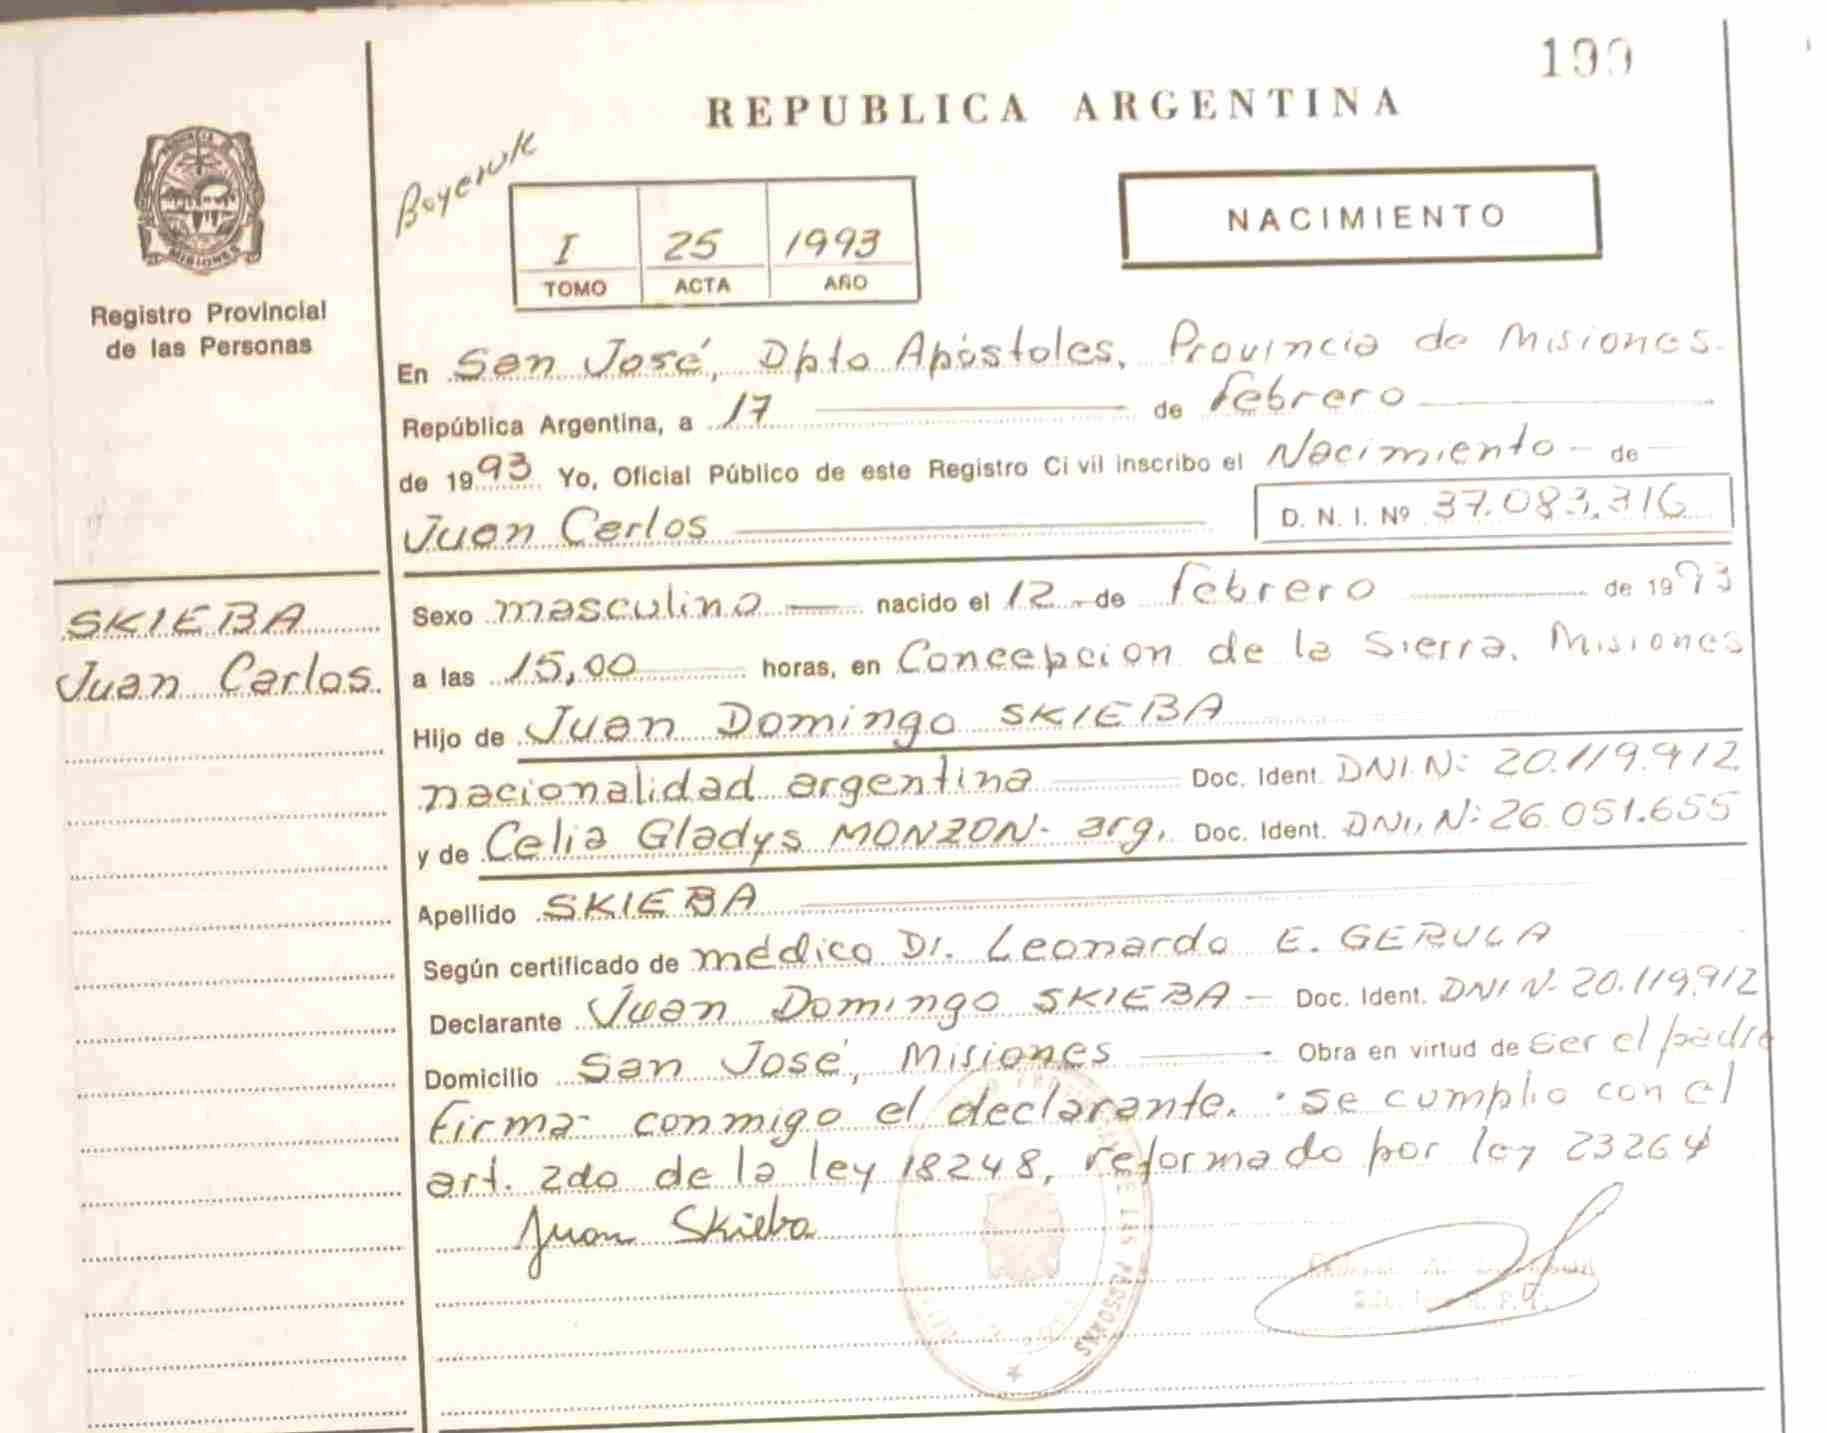 199
REPUBLICA ARGENTINA
PROVINCIA
MISIONES
Registro Provincial
de las Personas
I 25 1993
TOMO ACTA AÑO
NACIMIENTO
En San José, Dpto Apóstoles, Provincia de Misiones.
República Argentina, a 17 de febrero
de 1993 Yo, Oficial Público de este Registro Civil inscribo el Nacimiento - de
Juan Carlos
D. N. I. Nº 37.083.316
SKIEBA
Juan Carlos.
Sexo masculino nacido el 12 - de febrero de 1993
a las 15,00 horas, en Concepcion de la Sierra. Misiones
Hijo de Juan Domingo SKIEBA
nacionalidad argentina Doc. Ident. DNI. N: 20.119.912
y de Celia Gladys MONZON - arg. Doc. Ident. DNI, N: 26.051.655
Apellido SKIEBA
Según certificado de médico Dr. Leonardo E. GERULA
Declarante Juan Domingo SKIEBA - Doc. Ident. DNI N- 20.119.912
Domicilio San José, Misiones Obra en virtud de ser el padre
firma conmigo el declarante. Se cumplio con el
art. 2do de la ley 18248, reformado por ley 23264
Juan Skieba
DE LAS PERSONAS